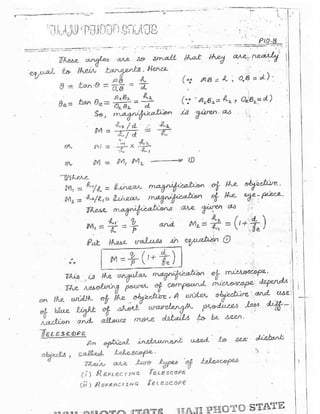 HAJI PHOTO STATE
P10-8
These angles are so small that they are nearly
equal to their tangents. Hence
θ = tan θ = AB/O₁B = h/d (∵ AB = h, O₁B = d)
θe = tan θe = A₂B₂/O₂B₂ = h₂/d (∵ A₂B₂ = h₂, O₂B₂ = d)
So, magnification is given as
M = (h₂/d)/(h/d) = h₂/h
or M = h₁/h × h₂/h₁
or M = M₁ M₂ → ①
Where
M₁ = h₁/h = Linear magnification of the objective.
M₂ = h₂/h₁ = Linear magnification of the eye-piece.
These magnifications are given as
M₁ = h₁/h = q/p and M₂ = h₂/h₁ = (1 + d/fe)
Put these values in equation ①
∴ M = q/p (1 + d/fe)
This is the angular magnification of microscope.
The resolving power of compound microscope depends
on the width of the objective. A wider objective and use
of blue light of short wavelength produces less diff-
raction and allows more details to be seen.
TELESCOPE
An optical instrument used to see distant
objects, called telescope.
Their are two types of telescopes
(i) REFLECTING TELESCOPE
(ii) REFRACTING TELESCOPE
HAJI PHOTO STATE HAJI PHOTO STATE